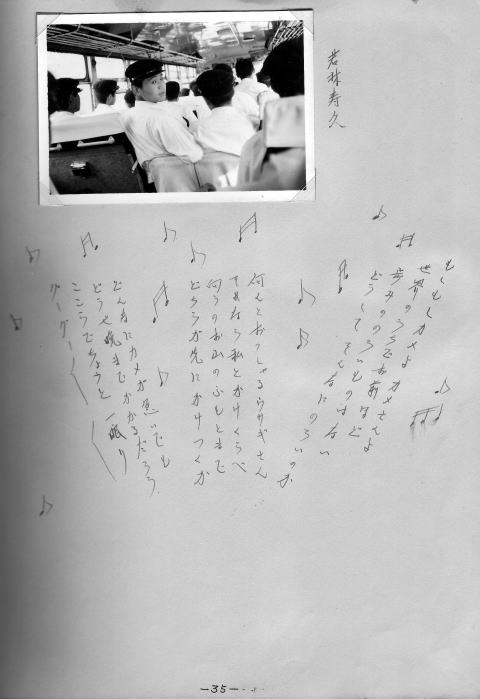 若林寿久
もしもしカメよカメさんよ
世界のうちでお前ほど
歩みののろいものはない
どうしてそんなにのろいのか
何とおっしゃるウサギさん
それなら私とかけくらべ
向うのお山のふもとまで
どちらが先にかけつくか
どんなにカメが急いでも
どうせ晩までかかるだろう
ここらでちょっと一眠り
グーグーグー
-35-